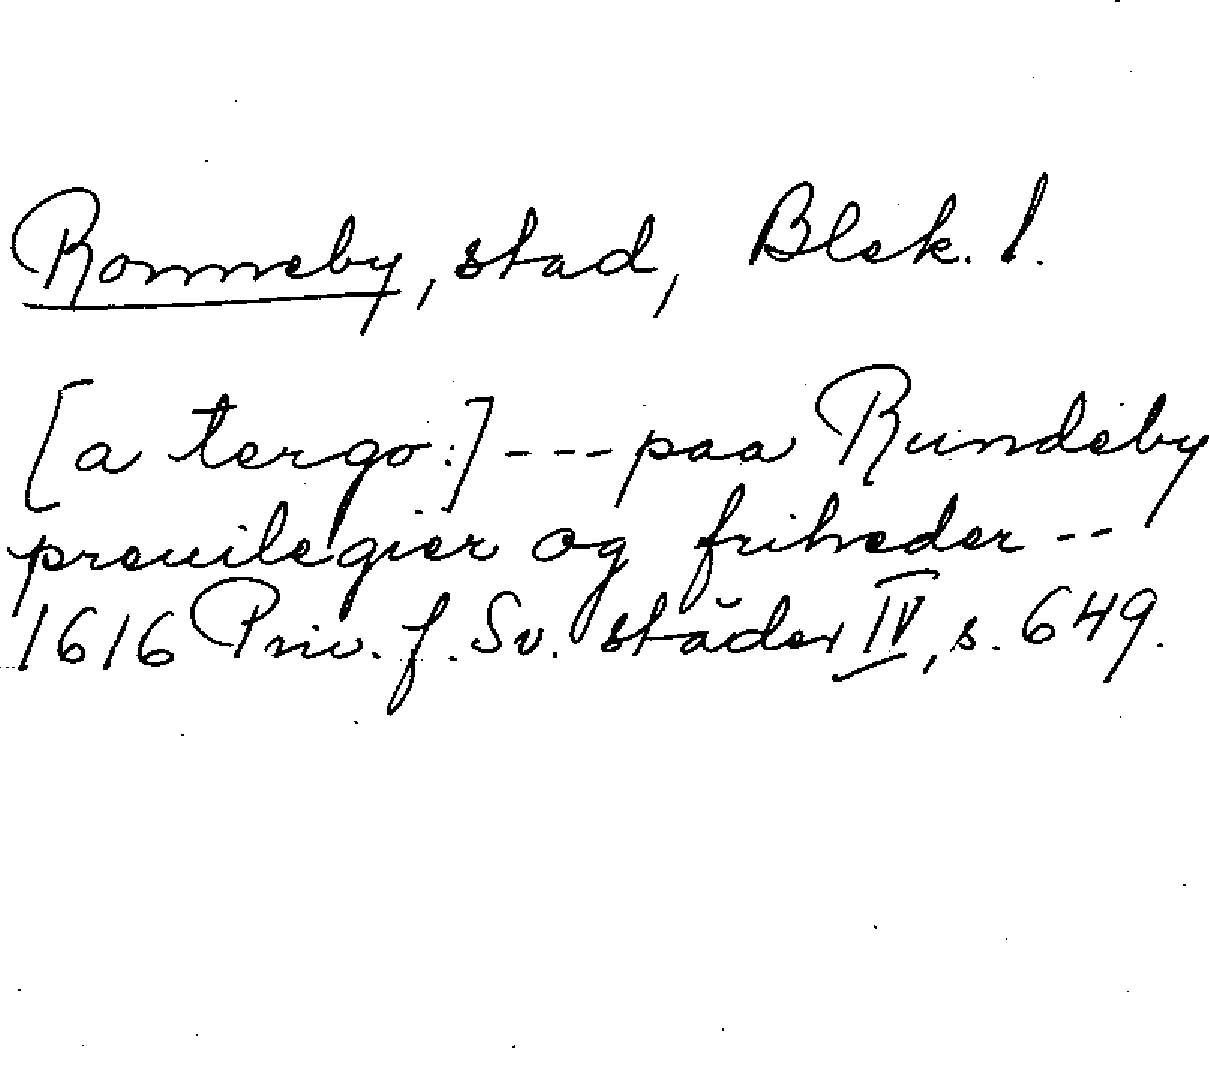 Ronneby, stad, Blek. l.
[a tergo:] --- paa Rundeby
preuilegier og friheder --
1616 Priv. f. Sv. städer IV, s. 649.